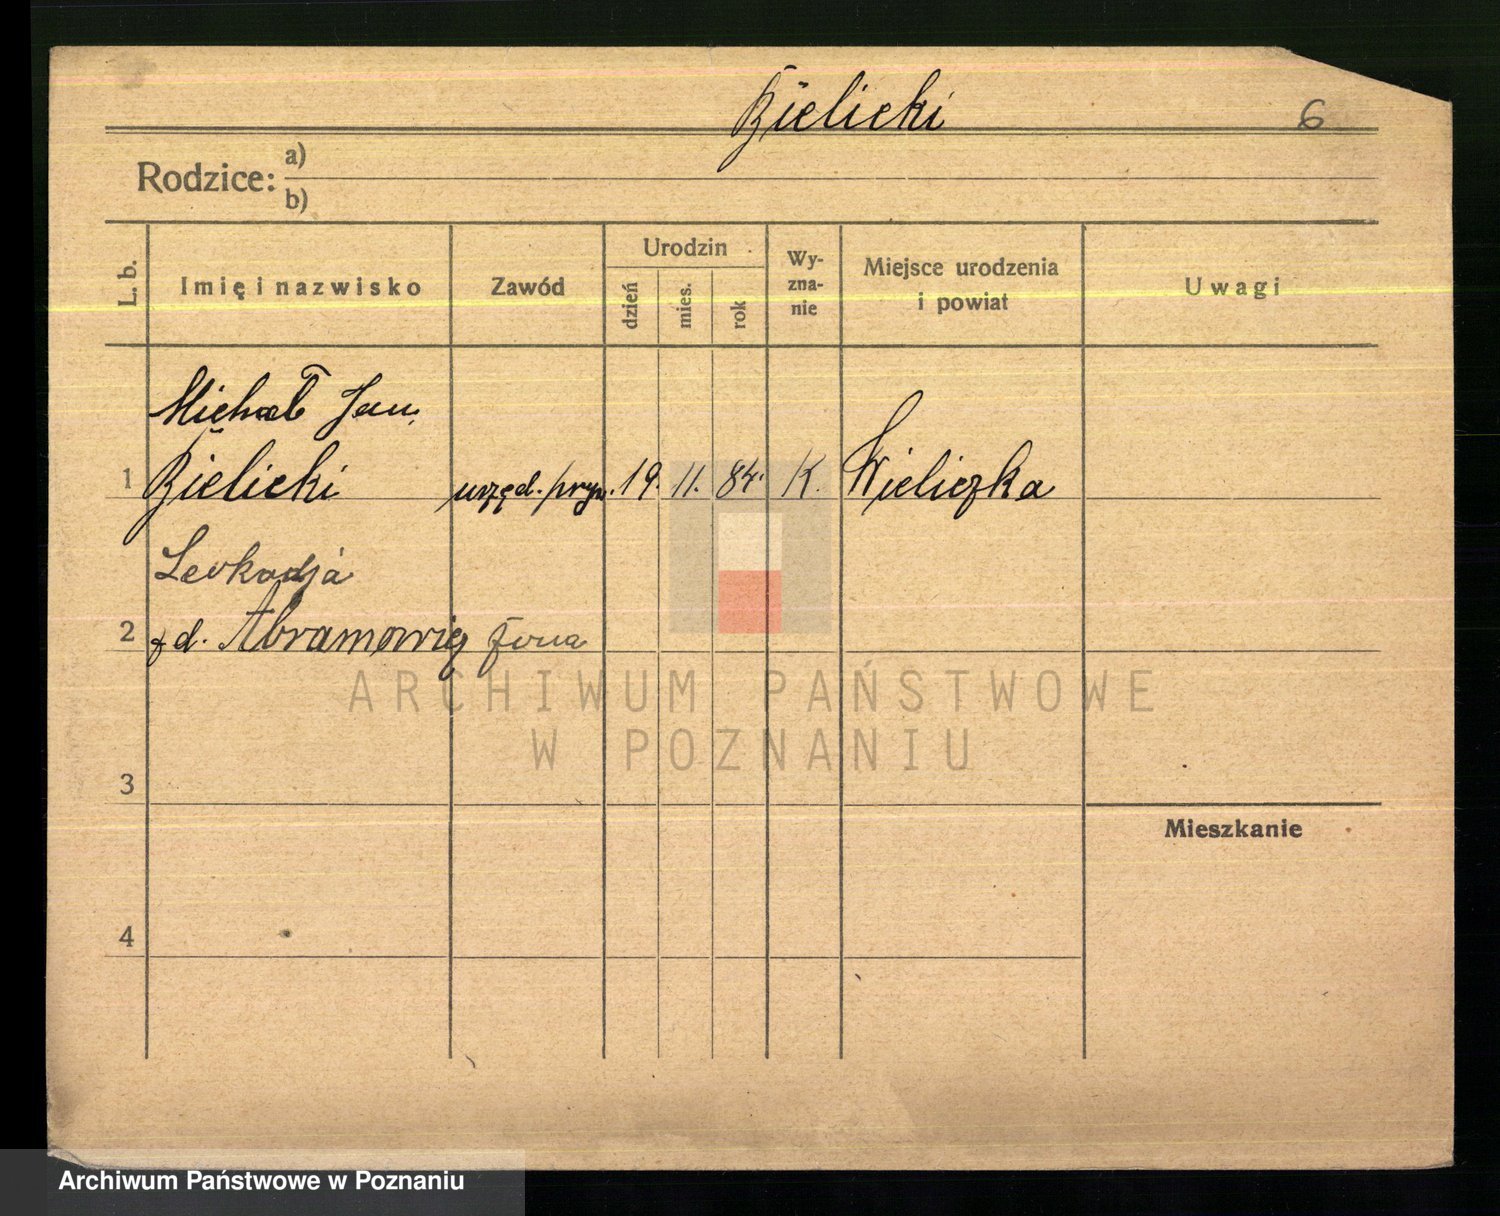 Bielicki 6
Rodzice: a)
b)
L. b. Imię i nazwisko Zawód Urodzin dzień mies. rok Wy-zna-nie Miejsce urodzenia i powiat Uwagi
Michał Jan
1 Bielicki urzęd. pryw. 19. 11. 84. K. Wieliczka
Leokadja
2 z d. Abramowicz żona
ARCHIWUM PAŃSTWOWE
W POZNANIU
3
Mieszkanie
4
Archiwum Państwowe w Poznaniu